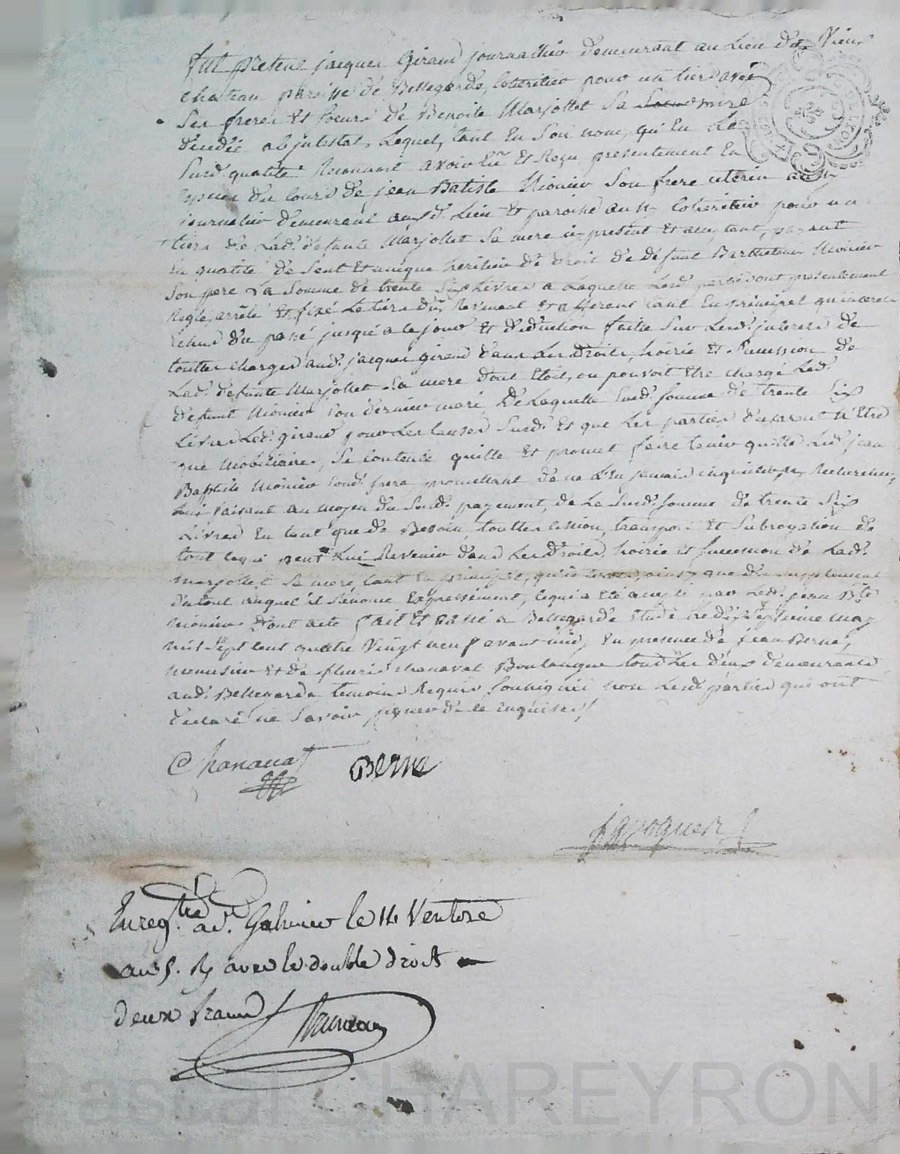 fut présent jacques Girard journallier demeurant au Lieu du Vieux
chateau paroisse de Bellegarde, Cohéritier pour un tiers avec
Ses freres et soeurs de Benoite Marjollet Sa mere
décédée ab jntestat, Lequel, tant En Son nom, qu'En La
Susd. qualité Reconnoit avoir Eu et Reçu présentement En
du Cours de jean Batiste Monier Son frere uterin
journalier demeurant aud. Lieu et paroisse aussy Coheritier pour un
tiers de Lad. défunte Marjollet Sa mere jcy présent et acceptant, payant
En qualité de Seul et unique heritier de Droit de défunt Barthelemy Monier
Son pere La Somme de trente Six Livres a Laquelle Lesd. parties ont présentement
Réglé, arrêté et fixé Le tiers et afférant tant En principal qu'interets
du passé jusqu'a ce jour et déduction faite Sur Lesd. jnterets de
touttes charges aud. jacques girard dans Les Droits, hoirie et Succession de
Lad. défunte Marjollet Sa mere dont Etoit, ou pouvoit Etre chargé Led.
défunt Monier Son dernier mari, De Laquelle Susd. Somme de trente Six
Livres Led. girard pour Les Causes Susd. Et que Les parties déclarent N'Etre
que Mobiliaires, Se Contente, quitte Et promet faire tenir quitte Led. jean
Baptiste Monier Sond. frere promettant de ne L'En jamais jnquieter ny Rechercher,
Lui faisant au moyen du Susd. payement, de La Susd. Somme de trente Six
Livres En tant que de Besoin, toutte Cession, transport et Subrogation de
tout ce qui peut Lui Revenir dans Les Droits, hoirie et Succession de Lad.
Marjollet Sa mere tant En principal, qu'interets, ainsy que du Supplement
du tout auquel il Rénonce Expressément, ce qui a Eté accepté par Led. jean Bte
Monier Dont acte fait et passé a Bellegarde Etude Le dix Septieme may
mil Sept Cent quatre Vingt neuf avant midi, En présence de jean Berne,
menuisier et de fleuri Chanavat Boulanger tous Les deux demeurants
aud. Bellegarde temoins Requis Soussignés non Lesd. parties qui ont
déclaré ne Savoir signer de ce Enquises //
Chanavat Berne
Enreg.tré ad. Galmier le 14 Ventose
an 5. R avec le double droit
deux francs
Pascal CHAREYRON